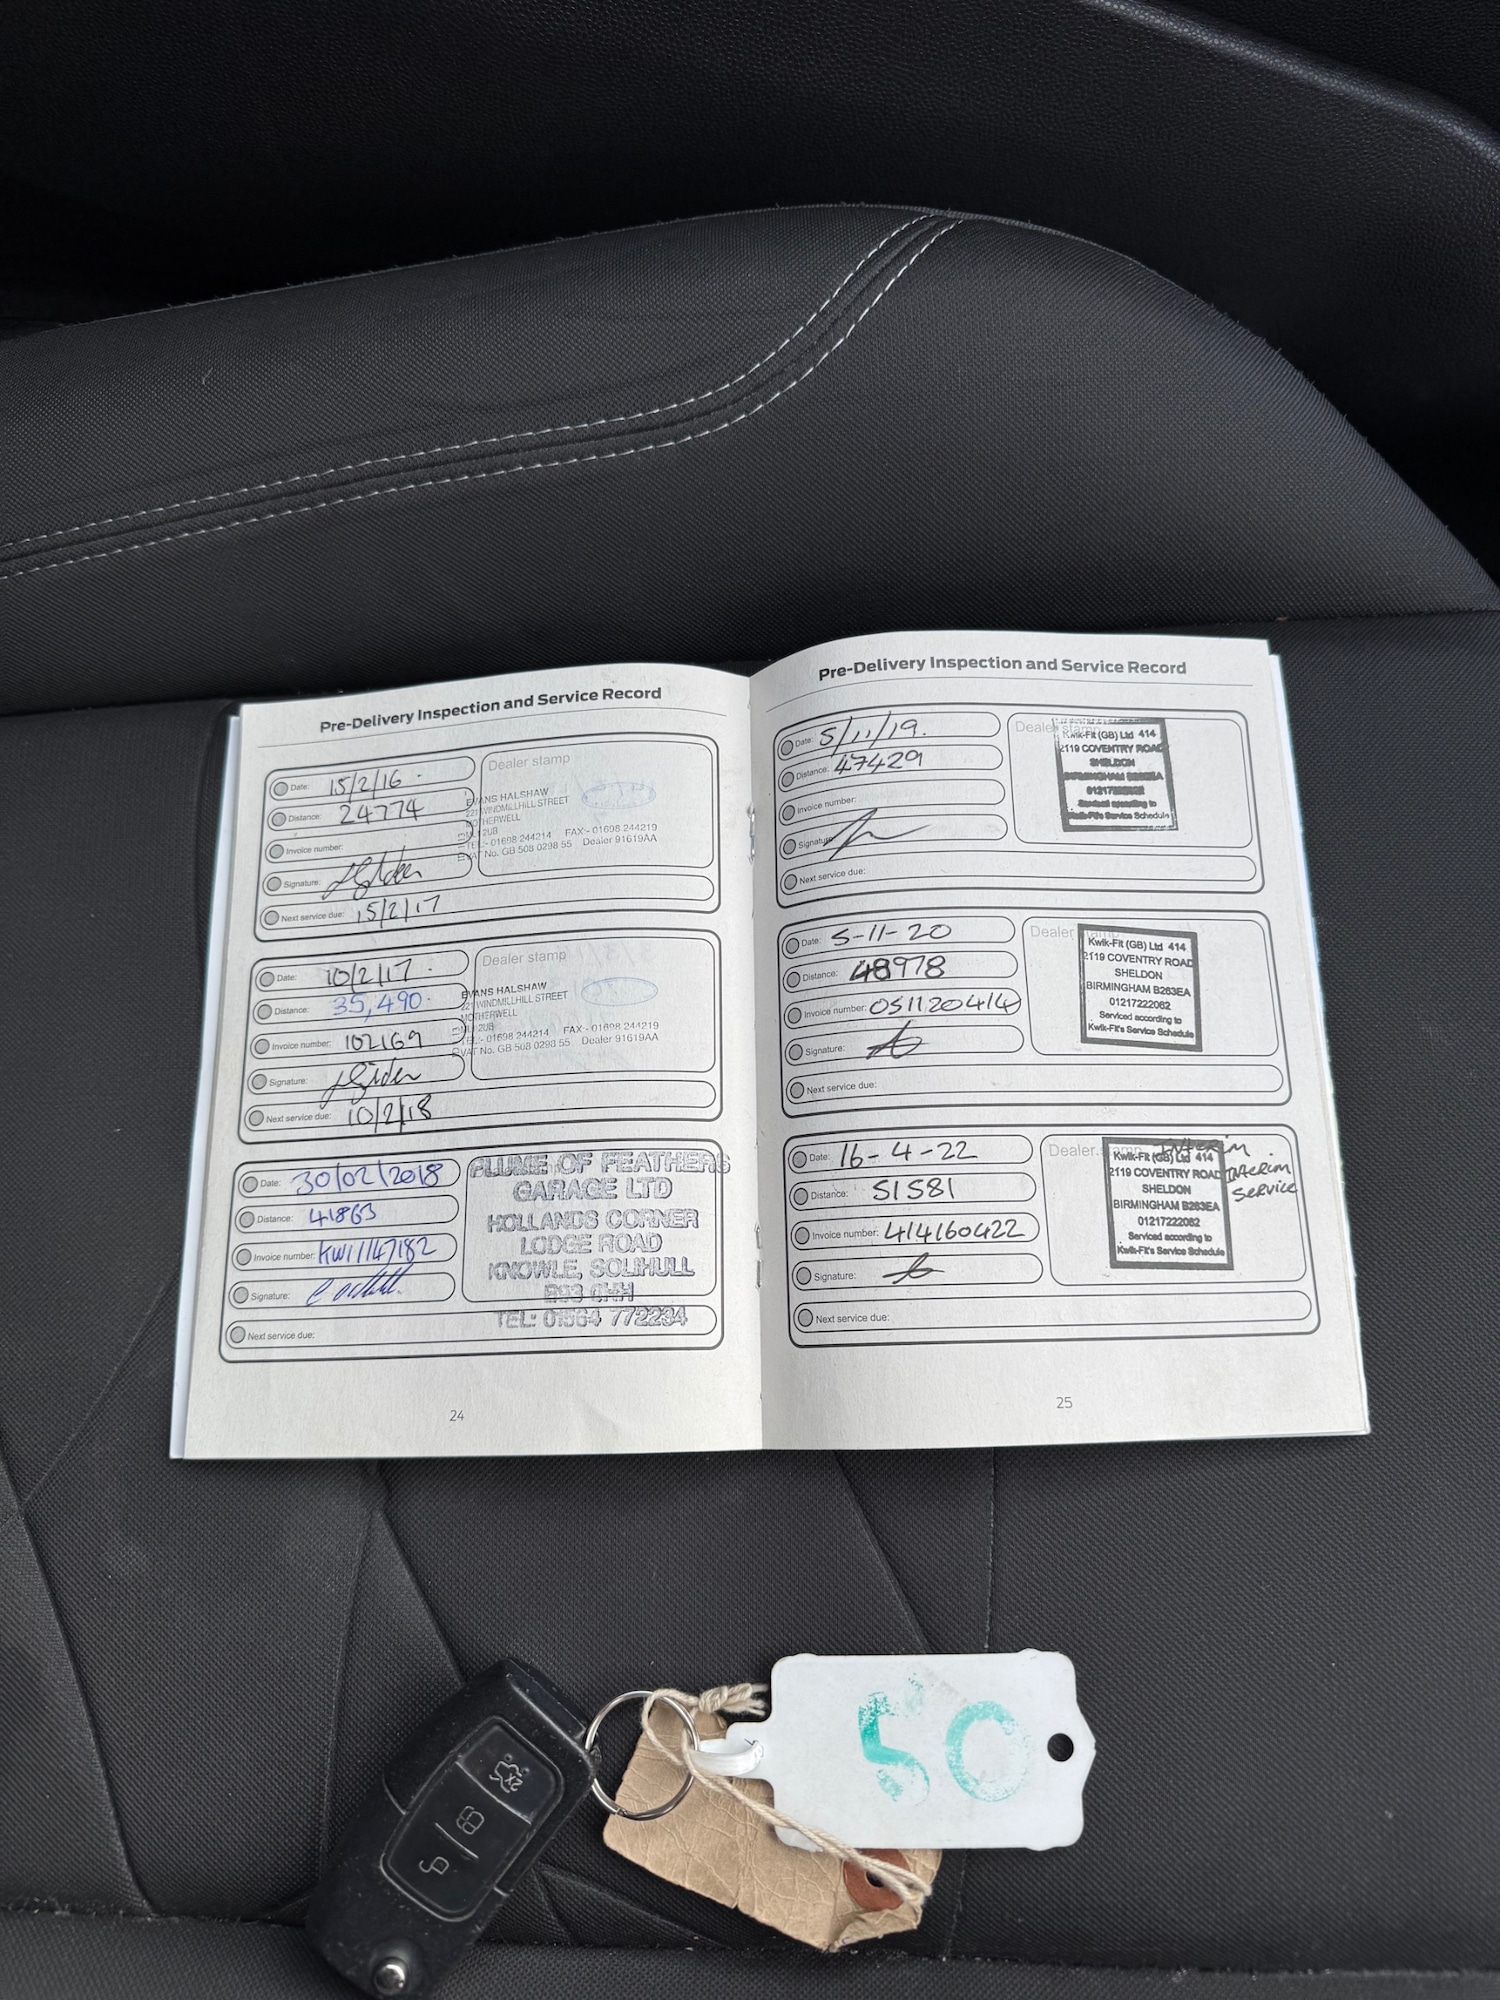 Pre-Delivery Inspection and Service Record
Date: 15/2/16
Dealer stamp
Distance: 24774
EVANS HALSHAW
221 WINDMILLHILL STREET
MOTHERWELL
ML1 2UB
TEL:- 01698 244214 FAX:- 01698 244219
VAT No. GB 508 0298 55 Dealer 91619AA
Invoice number:
Signature:
Next service due: 15/2/17
Date: 10/2/17
Dealer stamp
Distance: 35,490
EVANS HALSHAW
221 WINDMILLHILL STREET
MOTHERWELL
ML1 2UB
TEL:- 01698 244214 FAX:- 01698 244219
VAT No. GB 508 0298 55 Dealer 91619AA
Invoice number: 102169
Signature:
Next service due: 10/2/18
Date: 30/02/2018
Distance: 41863
Invoice number: KW11147182
Signature:
Next service due:
PLUME OF FEATHERS
GARAGE LTD
HOLLANDS CORNER
LODGE ROAD
KNOWLE, SOLIHULL
TEL: 01564 772234
24
Pre-Delivery Inspection and Service Record
Date: 5/11/19.
Distance: 47429
Invoice number:
Signature:
Next service due:
Dealer stamp
Kwik-Fit (GB) Ltd 414
2119 COVENTRY ROAD
SHELDON
BIRMINGHAM B263EA
Serviced according to
Kwik-Fit's Service Schedule
Date: 5-11-20
Distance: 48978
Invoice number: 051120414
Signature:
Next service due:
Dealer stamp
Kwik-Fit (GB) Ltd 414
2119 COVENTRY ROAD
SHELDON
BIRMINGHAM B263EA
01217222062
Serviced according to
Kwik-Fit's Service Schedule
Date: 16-4-22
Distance: 51581
Invoice number: 414160422
Signature:
Next service due:
Dealer stamp
Interim
Kwik-Fit (GB) Ltd 414
2119 COVENTRY ROAD
SHELDON
BIRMINGHAM B263EA
01217222062
Serviced according to
Kwik-Fit's Service Schedule
Interim
Service
25
50